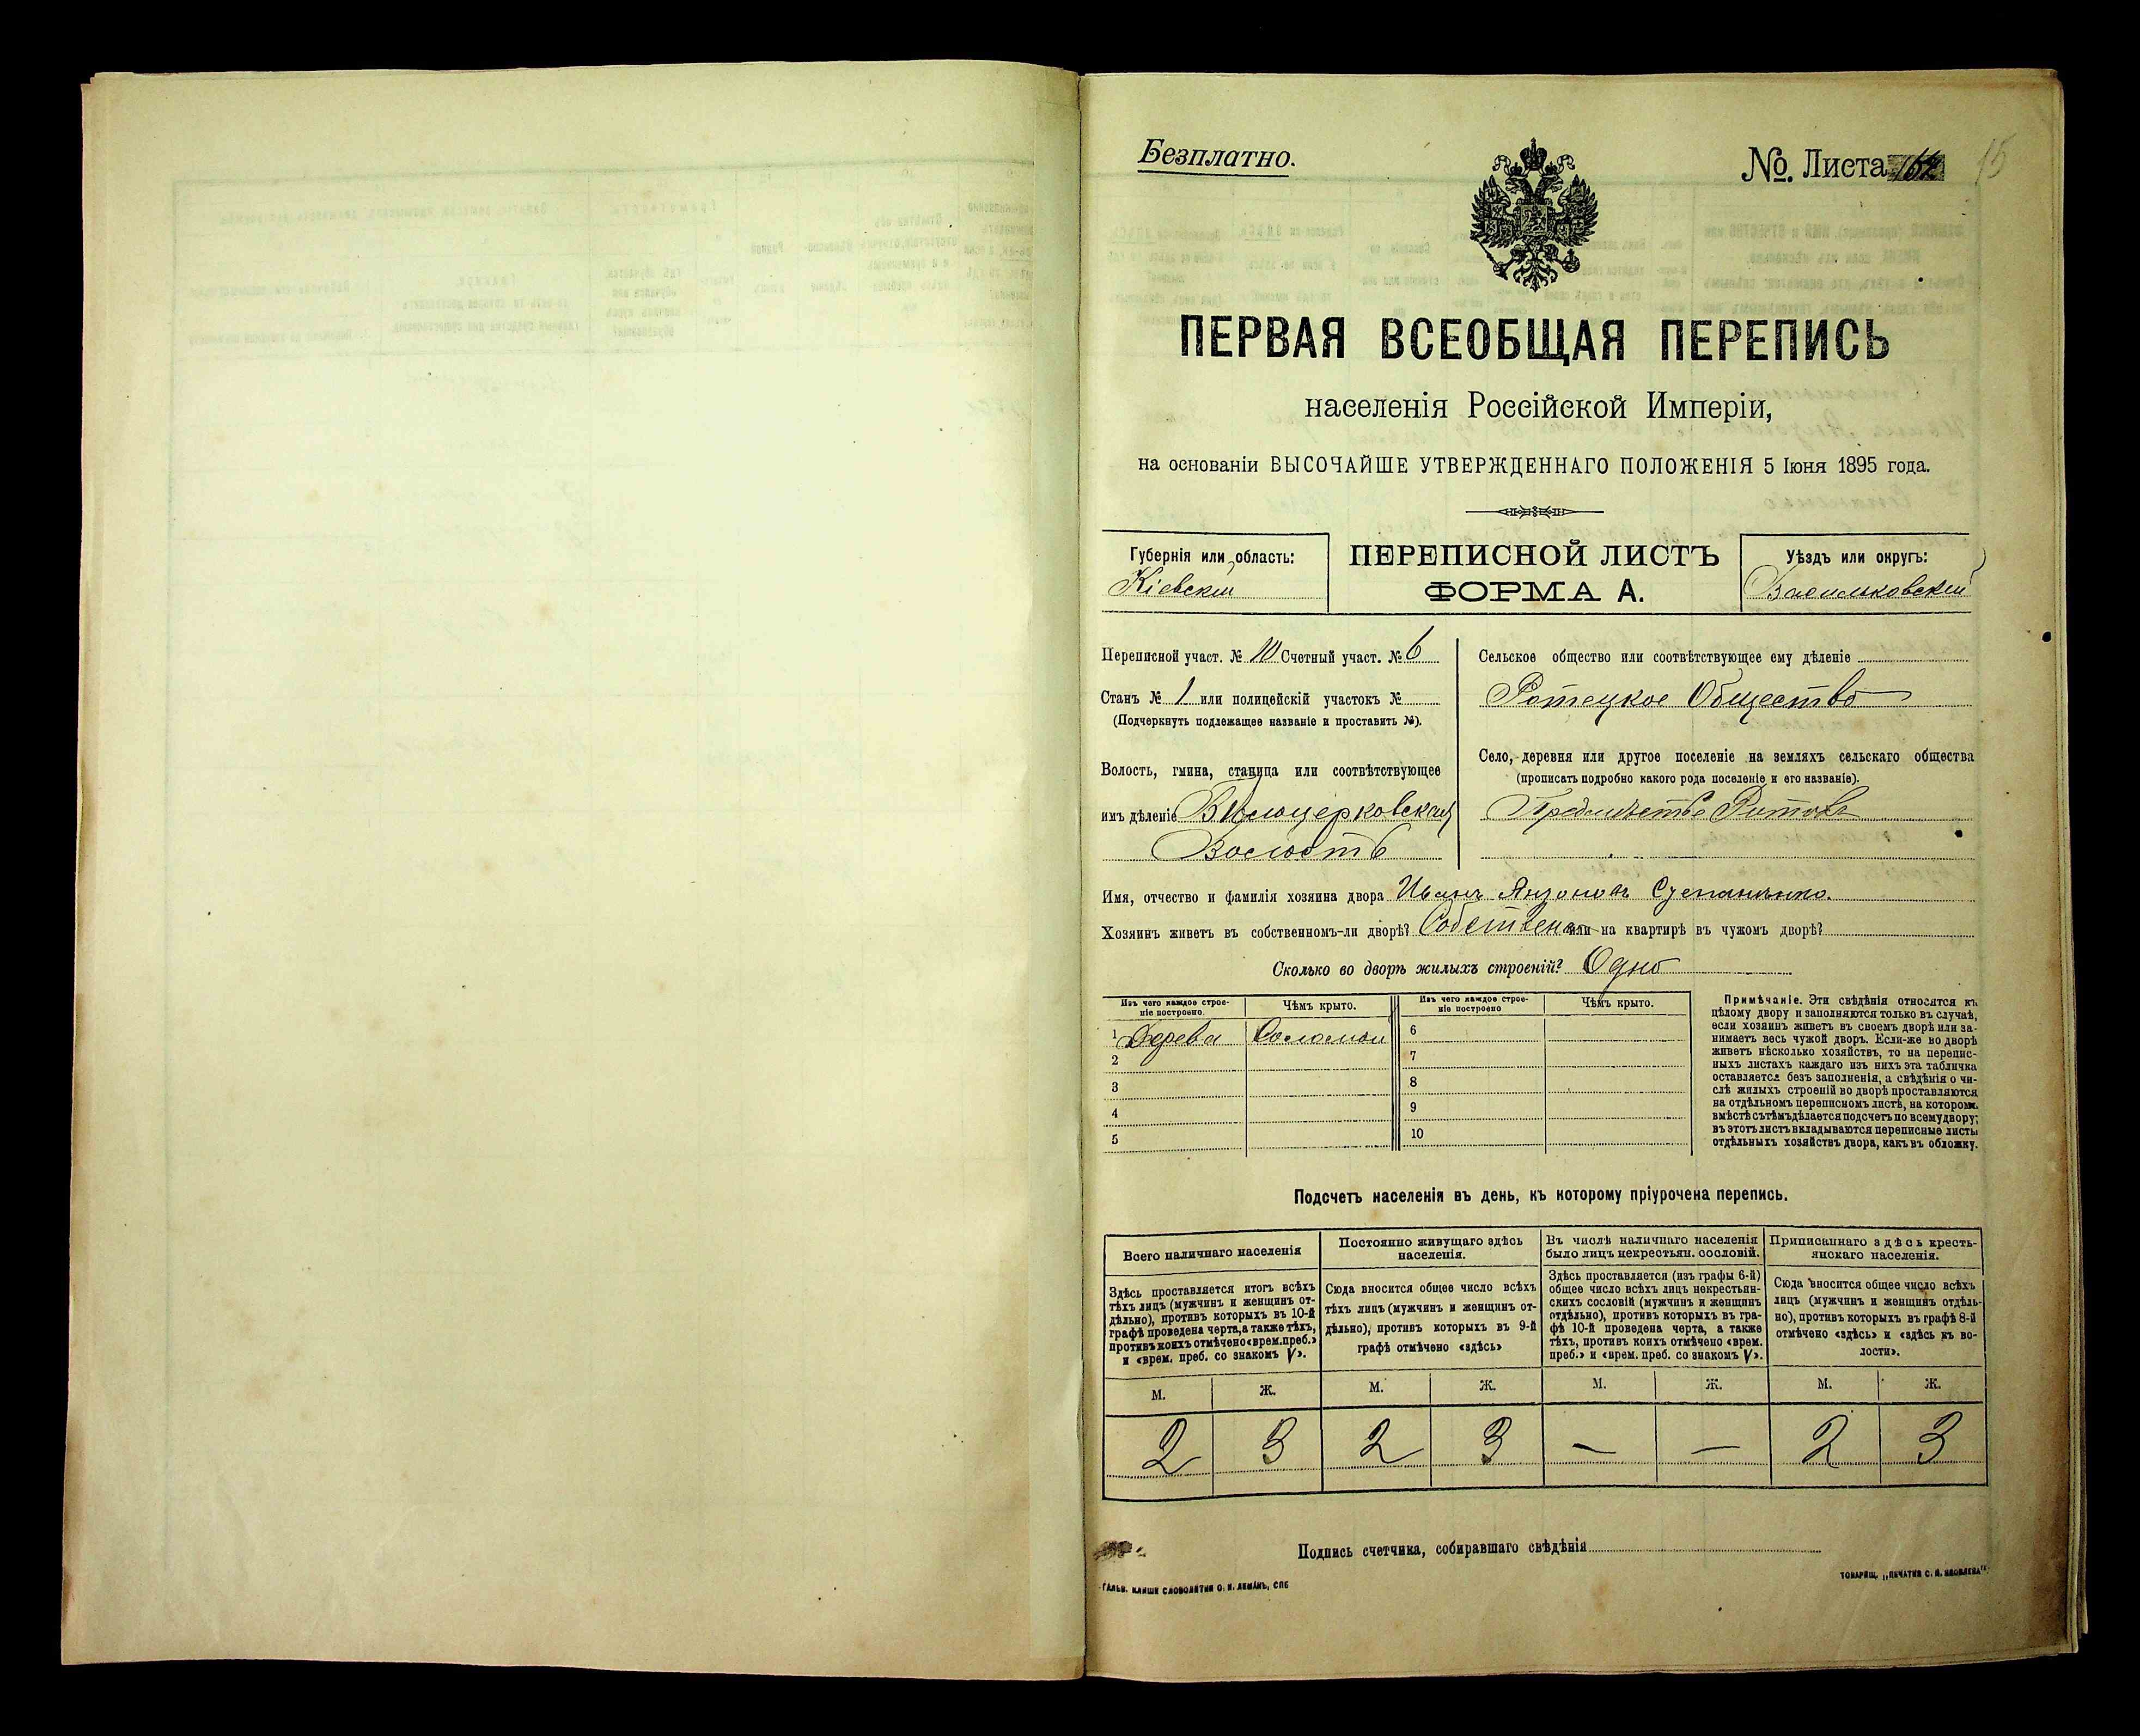 Безплатно.
№. Листа 15
ПЕРВАЯ ВСЕОБЩАЯ ПЕРЕПИСЬ
населенія Россійской Имперіи,
на основаніи ВЫСОЧАЙШЕ УТВЕРЖДЕННАГО ПОЛОЖЕНІЯ 5 Іюня 1895 года.
Губернія или область:
Кіевскій
ПЕРЕПИСНОЙ ЛИСТЪ
ФОРМА А.
Уѣздъ или округъ:
Васильковскій
Переписной участ. № 10 Счетный участ. № 6
Станъ № 1 или полицейскій участокъ №
(Подчеркнуть подлежащее названіе и проставить №).
Волость, гмина, станица или соотвѣтствующее
имъ дѣленіе Бѣлоцерковская
Волость
Сельское общество или соотвѣтствующее ему дѣленіе
Ротецкое Общество
Село, деревня или другое поселеніе на земляхъ сельскаго общества
(прописать подробно какого рода поселеніе и его названіе).
Предмѣстье Ротокъ
Имя, отчество и фамилія хозяина двора Иванъ Степаненко.
Хозяинъ живетъ въ собственномъ-ли дворѣ? Собствен или на квартирѣ въ чужомъ дворѣ?
Сколько во дворѣ жилыхъ строеній? Одно
Изъ чего каждое строе-
ніе построено.
Чѣмъ крыто.
Изъ чего каждое строе-
ніе построено
Чѣмъ крыто.
1 Дерева Соломои 6
2 7
3 8
4 9
5 10
Примѣчаніе. Эти свѣдѣнія относятся къ
цѣлому двору и заполняются только въ случаѣ,
если хозяинъ живетъ въ своемъ дворѣ или за-
нимаетъ весь чужой дворъ. Если-же во дворѣ
живетъ нѣсколько хозяйствъ, то на перепис-
ныхъ листахъ каждаго изъ нихъ эта табличка
оставляется безъ заполненія, а свѣдѣнія о чи-
слѣ жилыхъ строеній во дворѣ проставляются
на отдѣльномъ переписномъ листѣ, на которомъ
вмѣстѣ съ тѣмъ дѣлается подсчетъ по всему двору;
въ этотъ листъ вкладываются переписные листы
отдѣльныхъ хозяйствъ двора, какъ въ обложку.
Подсчетъ населенія въ день, къ которому пріурочена перепись.
Всего наличнаго населенія
Здѣсь проставляется итогъ всѣхъ
тѣхъ лицъ (мужчинъ и женщинъ от-
дѣльно), противъ которыхъ въ 10-й
графѣ проведена черта, а также тѣхъ,
противъ коихъ отмѣчено «врем. преб.»
и «врем. преб. со знакомъ V».
Постоянно живущаго здѣсь
населенія.
Сюда вносится общее число всѣхъ
тѣхъ лицъ (мужчинъ и женщинъ от-
дѣльно), противъ которыхъ въ 9-й
графѣ отмѣчено «здѣсь»
Въ числѣ наличнаго населенія
было лицъ некрестьян. сословій.
Здѣсь проставляется (изъ графы 6-й)
общее число всѣхъ лицъ некрестьян-
скихъ сословій (мужчинъ и женщинъ
отдѣльно), противъ которыхъ въ гра-
фѣ 10-й проведена черта, а также
тѣхъ, противъ коихъ отмѣчено «врем.
преб.» и «врем. преб. со знакомъ V».
Приписаннаго здѣсь кресть-
янскаго населенія.
Сюда вносится общее число всѣхъ
лицъ (мужчинъ и женщинъ отдѣль-
но), противъ которыхъ въ графѣ 8-й
отмѣчено «здѣсь» и «здѣсь въ во-
лости».
М. Ж. М. Ж. М. Ж. М. Ж.
2 3 2 3 — — 2 3
Подпись счетчика, собиравшаго свѣдѣнія
ГАЛЬВ. КЛИШЕ СЛОВОЛИТНИ О. И. ЛЕМАНЪ, СПБ
ТОВАРИЩ. „ПЕЧАТНЯ С. П. ЯКОВЛЕВА".